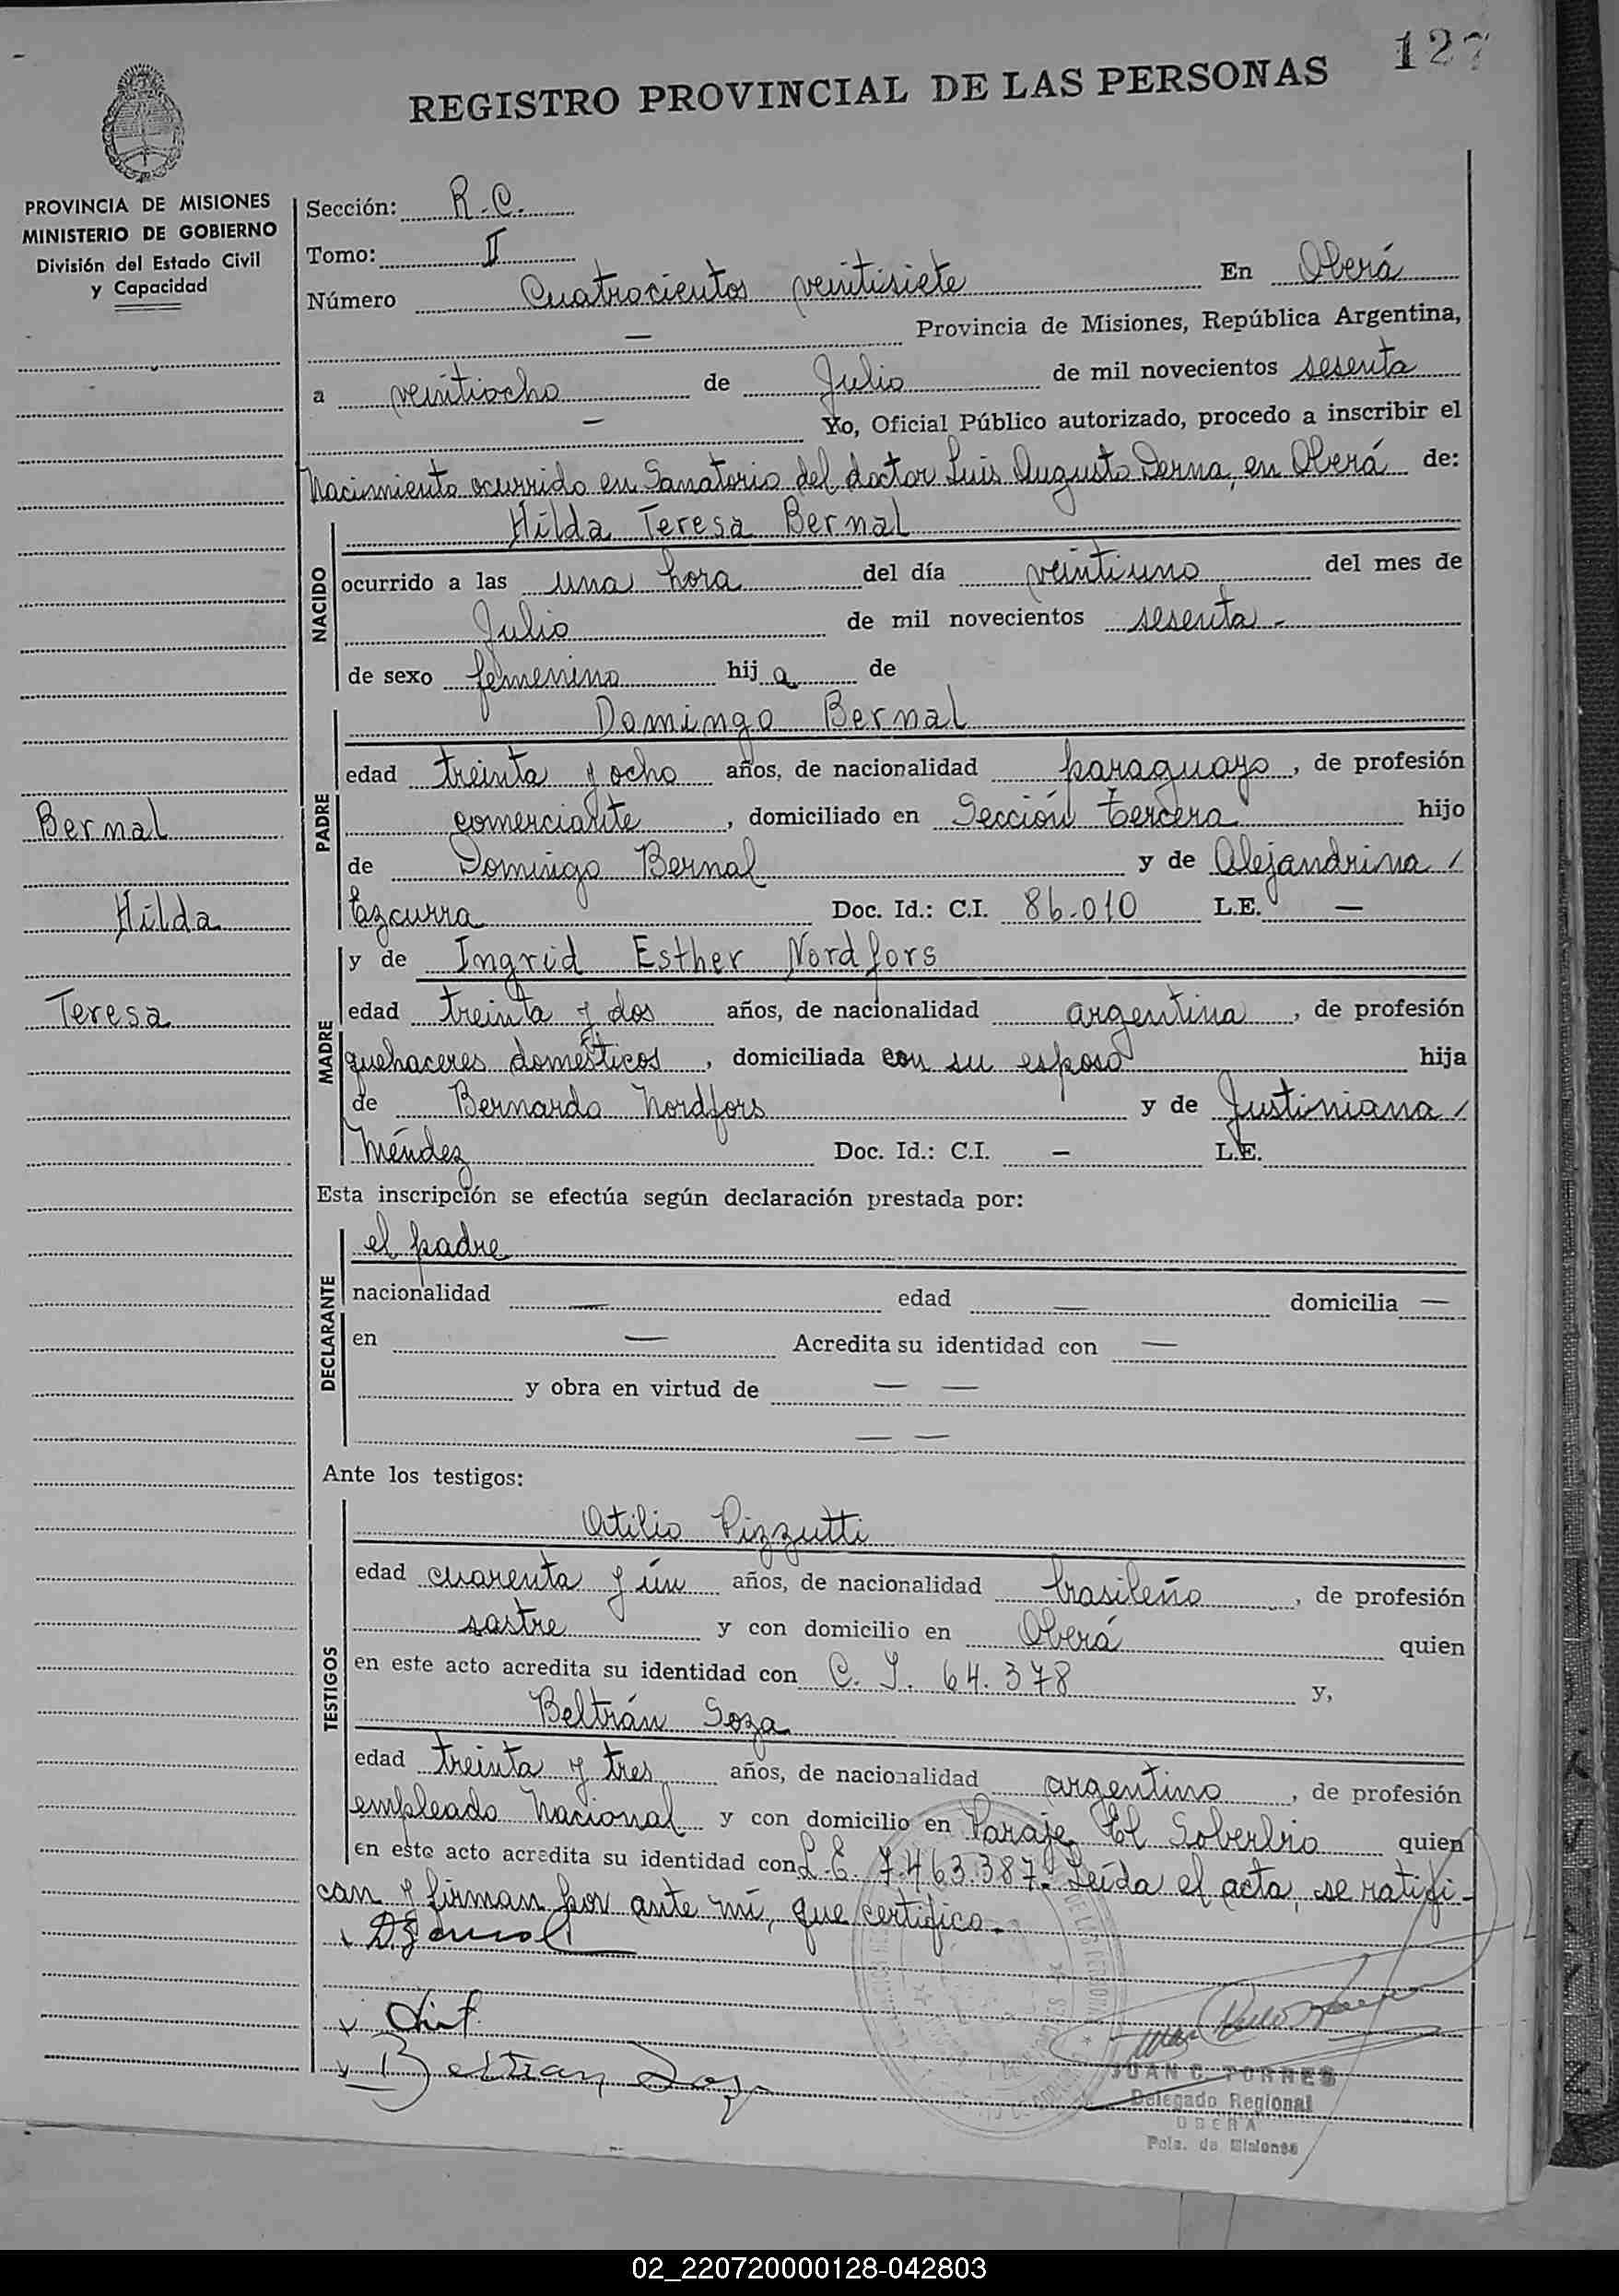 127
REGISTRO PROVINCIAL DE LAS PERSONAS
PROVINCIA DE MISIONES
MINISTERIO DE GOBIERNO
División del Estado Civil
y Capacidad
Sección: R.C.
Tomo: II
Número Cuatrocientos veintisiete En Oberá
— Provincia de Misiones, República Argentina,
a veintiocho de Julio de mil novecientos sesenta
— Yo, Oficial Público autorizado, procedo a inscribir el
Nacimiento ocurrido en Sanatorio del doctor Luis Augusto Derna, en Oberá de:
NACIDO
Hilda Teresa Bernal
ocurrido a las una hora del día veintiuno del mes de
Julio de mil novecientos sesenta -
de sexo femenino hij a de
PADRE
Domingo Bernal
edad treinta y ocho años, de nacionalidad paraguayo, de profesión
comerciante, domiciliado en Sección tercera hijo
de Domingo Bernal y de Alejandrina /
Ezcurra Doc. Id.: C.I. 86.010 L.E. —
Bernal
Hilda
Teresa
MADRE
y de Ingrid Esther Nordfors
edad treinta y dos años, de nacionalidad argentina, de profesión
quehaceres domésticos, domiciliada con su esposo hija
de Bernardo Nordfors y de Justiniana /
Méndez Doc. Id.: C.I. — L.E.
Esta inscripción se efectúa según declaración prestada por:
DECLARANTE
el padre
nacionalidad — edad — domicilia —
en — Acredita su identidad con —
y obra en virtud de — —
— —
Ante los testigos:
TESTIGOS
Atilio Pizzutti
edad cuarenta y ún años, de nacionalidad brasileño, de profesión
sastre y con domicilio en Oberá quien
en este acto acredita su identidad con C. I. 64.378 y,
Beltrán Soza
edad treinta y tres años, de nacionalidad argentino, de profesión
empleado Nacional y con domicilio en Paraje El Soberbio quien
en este acto acredita su identidad con L.E. 7.463.387. Leída el acta, se ratifi-
can y firman por ante mí, que certifico.
Beltran Soza
JUAN C. TORRES
Delegado Regional
OBERA
Pcia. de Misiones
02_220720000128-042803